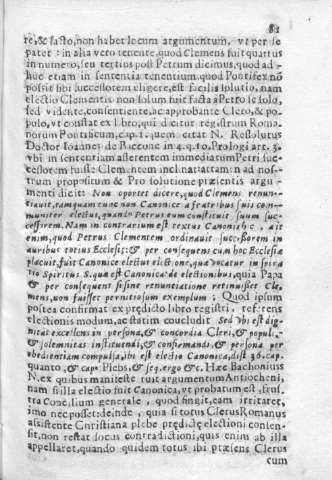 81
re, & facto, non habet locum argumentum, vt per se
patet: in alia vero tenente, quod Clemens fuit quartus
in numero, seu tertius post Petrum dicimus, quod ad-
huc etiam in sententia tenentium, quod Pontifex nõ
possit sibi successorem eligere, est facilis solutio, nam
electio Clementis non solum fuit facta a Petro se solo,
sed vidente, consentiente, ac approbante Clero, & po-
pulo, vt constat ex libro, qui dicitur registrum Roma-
norum Pontificum, cap. 1. quem citat N. Resolutus
Doctor Ioannes de Baccone in 4. q. 10. Prologi art. 3.
vbi in sententiam asserentem immediatum Petri suc-
cessorem fuisse Clementem inclinat: attamen ad nos-
trum propositum & Pro solutione præsentis argu-
menti dicit: Non oportet dicere, quod Clemens renun-
tiauit, tamquam tunc non Canonice a fratribus suis com-
muniter electus, quando Petrus eum constituit suum suc-
cessorem. Nam in contrarium est textus Canonis, ait
enim, quod Petrus Clementem ordinauit successorem in
auribus totius Ecclesiæ: & per consequens cum hoc Ecclesiæ
placuit, fuit Canonice electus electione, qua vocatur inspira
tio Spiritus S. quæ est Canonica: de electionibus, quia Papa
& per consequens si sine renunciatione retinuisset Cle-
mens, non fuisset pernitiosum exemplum: Quod ipsum
postea confirmat ex prædicto libro registri, referens
electionis modum, ac statim concludit: Sed vbi est dig-
nitas excelsem in persona, & concordia Cleri, & populi,
& solemnitas instituendi, & confirmandi, & persona per
obedientiam compulsa, ibi est electio Canonica, dist 36. cap.
quanto, & cap. Plebs, & seq. ergo &c. Hæc Bachonius
N. ex quibus manifeste ruit argumentum Antiocheni,
nam si illa electio fuit Canonica, vt probatum est, frust-
tra Concilium generale, quod fingit, eam irritaret,
imo nec posset: deinde, quia si totus Clerus Romanus
assistente Christiana plebe prędictę electioni consen-
sit, non restat locus contradictioni, quis enim ab illa
appellaret, quando quidem totus ibi præsens Clerus
cum